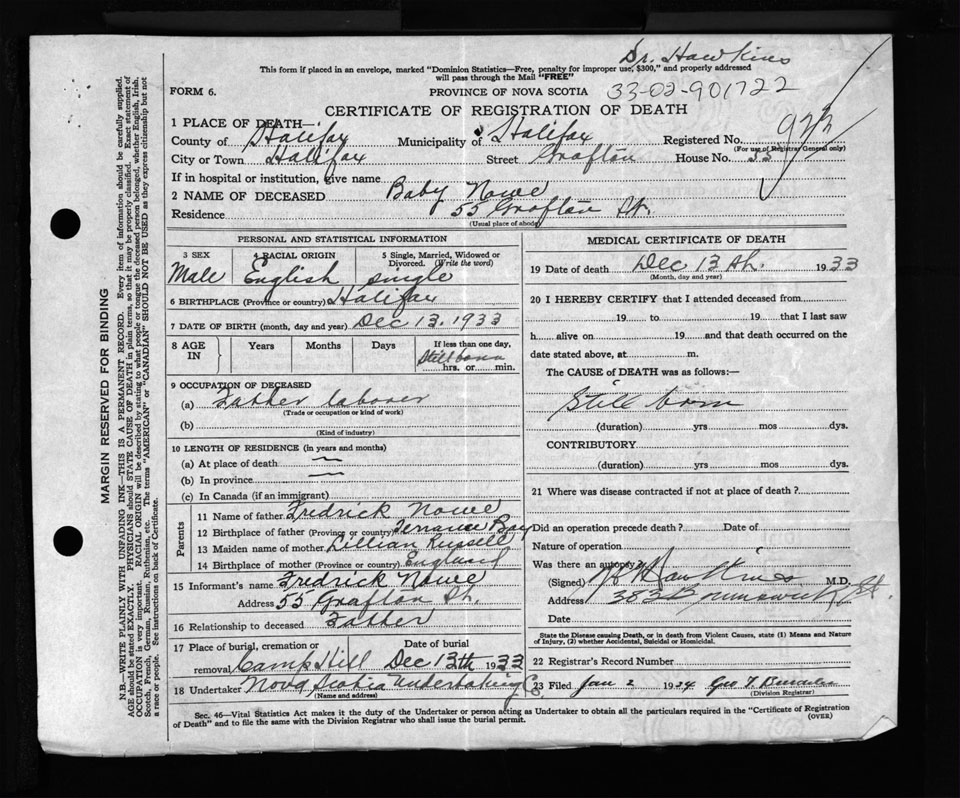 Dr. Hawkins
This form if placed in an envelope, marked "Dominion Statistics—Free, penalty for improper use, $300," and properly addressed
will pass through the Mail "FREE"
FORM 6.
PROVINCE OF NOVA SCOTIA
33-02-901722
CERTIFICATE OF REGISTRATION OF DEATH
1 PLACE OF DEATH—
County of Halifax Municipality of Halifax Registered No.
(For use of Registrar General only)
City or Town Halifax Street Grafton House No. 55
If in hospital or institution, give name
2 NAME OF DECEASED Baby Nowe
Residence 55 Grafton St.
(Usual place of abode)
PERSONAL AND STATISTICAL INFORMATION
3 SEX 4 RACIAL ORIGIN 5 Single, Married, Widowed or Divorced. (Write the word)
Male English single
6 BIRTHPLACE (Province or country) Halifax
7 DATE OF BIRTH (month, day and year) Dec 13, 1933
8 AGE IN Years Months Days If less than one day,
Stillborn
hrs. or min.
9 OCCUPATION OF DECEASED
(a) Father laborer
(Trade or occupation or kind of work)
(b)
(Kind of industry)
10 LENGTH OF RESIDENCE (in years and months)
(a) At place of death —
(b) In province —
(c) In Canada (if an immigrant)
Parents
11 Name of father Fredrick Nowe
12 Birthplace of father (Province or country) Terrance Bay
13 Maiden name of mother Lillian Russell
14 Birthplace of mother (Province or country) England
15 Informant's name Fredrick Nowe
Address 55 Grafton St.
16 Relationship to deceased Father
17 Place of burial, cremation or removal Date of burial
Camp Hill Dec 13th 1933
18 Undertaker Nova Scotia Undertaking Co
(Name and address)
MEDICAL CERTIFICATE OF DEATH
19 Date of death Dec 13th. 1933
(Month, day and year)
20 I HEREBY CERTIFY that I attended deceased from
19 to 19 that I last saw
h alive on 19 and that death occurred on the
date stated above, at m.
The CAUSE of DEATH was as follows:—
Still born
(duration) yrs mos dys.
CONTRIBUTORY
(duration) yrs mos dys.
21 Where was disease contracted if not at place of death?
Did an operation precede death? Date of
Nature of operation
Was there an autopsy?
(Signed) Hawkins M.D.
Address 383 Brunswick St.
Date
State the Disease causing Death, or in death from Violent Causes, state (1) Means and Nature
of Injury, (2) whether Accidental, Suicidal or Homicidal.
22 Registrar's Record Number
23 Filed Jan 2 1934 Geo
(Division Registrar)
Sec. 46—Vital Statistics Act makes it the duty of the Undertaker or person acting as Undertaker to obtain all the particulars required in the "Certificate of Registration
of Death" and to file the same with the Division Registrar who shall issue the burial permit.
(OVER)
MARGIN RESERVED FOR BINDING
N.B.—WRITE PLAINLY WITH UNFADING INK—THIS IS A PERMANENT RECORD. Every item of information should be carefully supplied.
AGE should be stated EXACTLY. PHYSICIANS should STATE CAUSE OF DEATH in plain terms, so that it may be properly classified. Exact statement of
OCCUPATION is very important. RACIAL ORIGIN will be described by stating to what people or tongue the deceased person belonged, whether English, Irish,
Scotch, French, German, Russian, Ruthenian, etc. The terms "AMERICAN" or "CANADIAN" SHOULD NOT BE USED as they express citizenship but not
a race or people. See instructions on back of Certificate.